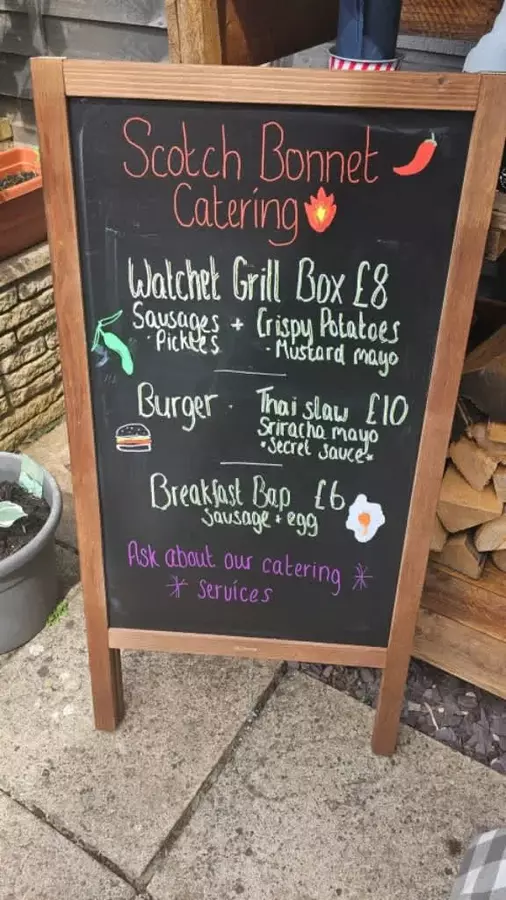 Scotch Bonnet
Catering
Watchet Grill Box £8
Sausages + Crispy Potatoes
· Pickles · Mustard mayo
Burger · Thai slaw £10
Sriracha mayo
*Secret Sauce*
Breakfast Bap £6
Sausage + egg
Ask about our catering
* Services *